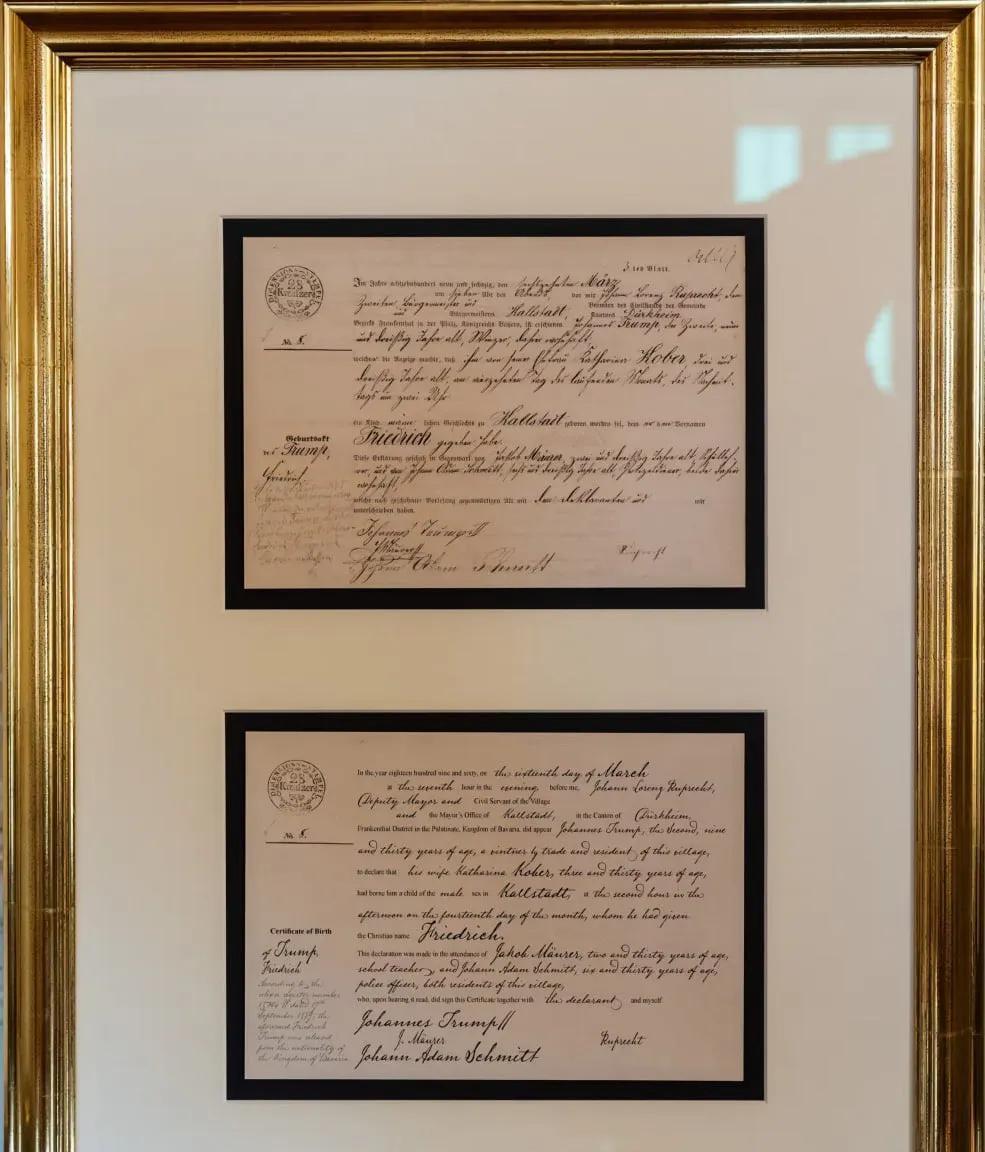 DIMENSIONS-STAMPEL
28
Kreuzer
3 tes Blatt.
Im Jahre achtzehnhundert neun und sechzig, den sechszehnten März
um sieben Uhr des Abends, vor mir Johann Lorenz Ruprecht, dem
Zweiten Bürgermeister und Beamten des Civilstandes der Gemeinde
und Bürgermeisterei Kallstadt, Kantons Dürkheim,
No. 8.
Bezirk Frankenthal in der Pfalz, Königreichs Bayern, ist erschienen Johannes Trump, der Zweite, neun
und dreißig Jahre alt, Winzer, dahier wohnhaft,
welcher die Anzeige machte, daß ihm von seiner Ehefrau Katharina Kober drei und
dreißig Jahre alt, am vierzehnten Tag des laufenden Monats, des Nachmit-
tags um zwei Uhr
ein Kind männ lichen Geschlechts zu Kallstadt geboren worden sei, dem er den Vornamen
Friedrich gegeben habe.
Geburtsakt
des Trump,
Friedrich.
Diese Erklärung geschah in Gegenwart von Jakob Mäurer, zwei und dreißig Jahre alt, Schulleh-
rer, und von Johann Adam Schmitt, sechs und dreißig Jahre alt, Polizeidiener, beide dahier
wohnhaft,
welche nach geschehener Vorlesung gegenwärtigen Akt mit dem Deklaranten und mir
unterschrieben haben.
Johannes Trump II
J. Mäurer
Ruprecht
Johann Adam Schmitt
DIMENSIONS-STAMPEL
28
Kreuzer
In the year eighteen hundred nine and sixty, on the sixteenth day of March
at the seventh hour in the evening, before me, Johann Lorenz Ruprecht,
Deputy Mayor and Civil Servant of the Village
and the Mayor's Office of Kallstadt, in the Canton of Dürkheim,
No. 8.
Frankenthal District in the Palatinate, Kingdom of Bavaria, did appear Johannes Trump, the Second, nine
and thirty years of age, a vintner by trade and resident of this village,
to declare that his wife Katharina Kober, three and thirty years of age,
had borne him a child of the male sex in Kallstadt, a the second hour in the
afternoon on the fourteenth day of the month, whom he had given
the Christian name Friedrich.
Certificate of Birth
of Trump,
Friedrich
According to the
dated
September the
aforesaid Friedrich
Trump was released
from the nationality of
the Kingdom of Bavaria
This declaration was made in the attendance of Jakob Mäurer, two and thirty years of age,
school teacher, and Johann Adam Schmitt, six and thirty years of age,
police officer, both residents of this village,
who, upon hearing it read, did sign this Certificate together with the declarant and myself
Johannes Trump II
J. Mäurer
Ruprecht
Johann Adam Schmitt